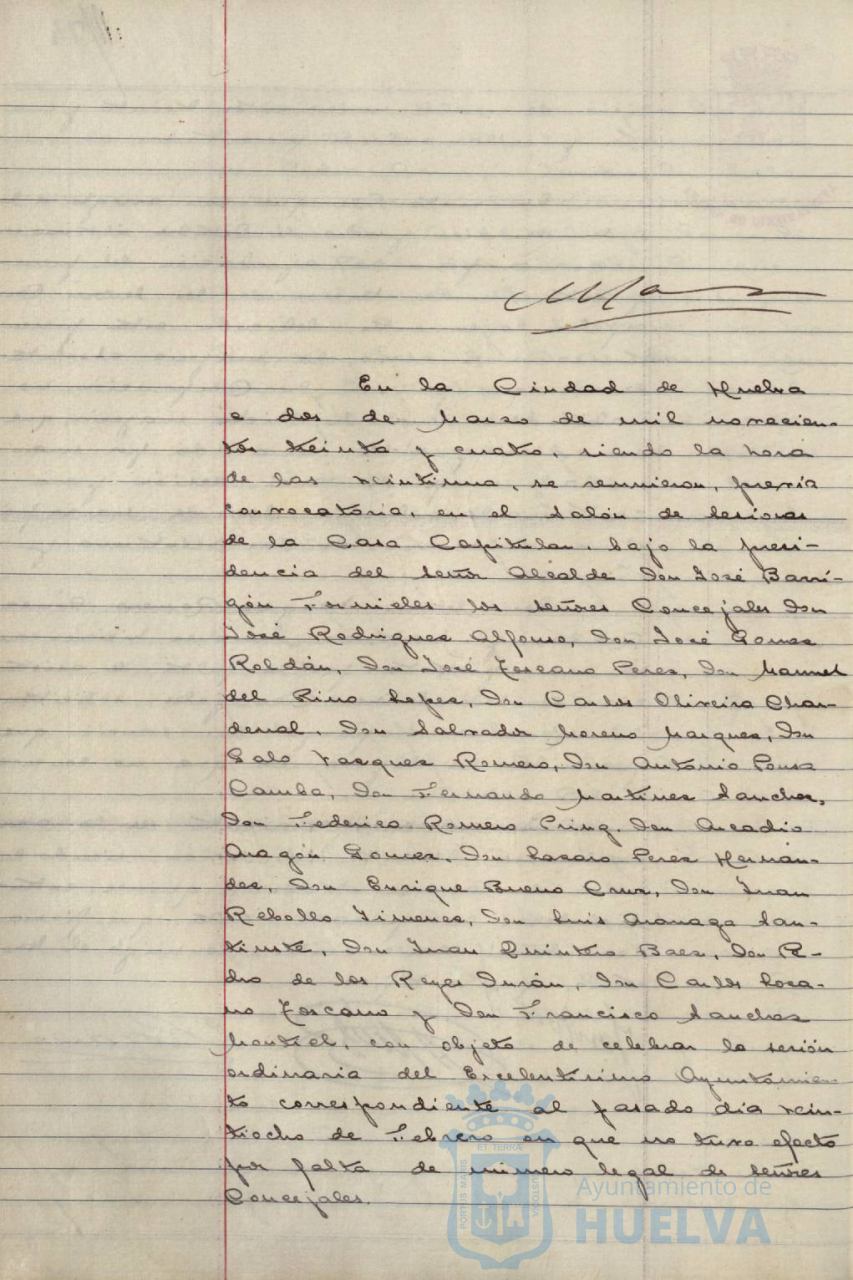 En la Ciudad de Huelva
a dos de Marzo de mil novecien-
tos treinta y cuatro, siendo la hora
de las veintiuna, se reunieron, previa
convocatoria, en el Salón de Sesiones
de la Casa Capitular, bajo la presi-
dencia del Señor Alcalde Don José Barri-
gón Fornieles los Señores Concejales Don
José Rodriguez Alfonso, Don José Gomez
Roldán, Don José Toscano Perez, Don Manuel
del Pino Lopez, Don Carlos Oliveira Chan-
denal, Don Salvador Moreno Marquez, Don
Galo Vazquez Romero, Don Antonio Pousa
Camba, Don Fernando Martinez Sanchez,
Don Federico Romero Pring, Don Arcadio
Aragón Gomez, Don Lazaro Perez Hernan-
dez, Don Enrique Bueno Cruz, Don Juan
Rebollo Jimenez, Don Luis Aranaga San-
tiuste, Don Juan Quintero Baez, Don Pe-
dro de los Reyes Durán, Don Carlos Loza-
no Toscano y Don Francisco Sanchez
Montiel, con objeto de celebrar la sesión
ordinaria del Excelentísimo Ayuntamien-
to correspondiente al pasado día vein-
tiocho de Febrero en que no tuvo efecto
por falta de número legal de Señores
Concejales.
ET TERRÆ
PORTUS MARIS
CUSTODIA
Ayuntamiento de
HUELVA